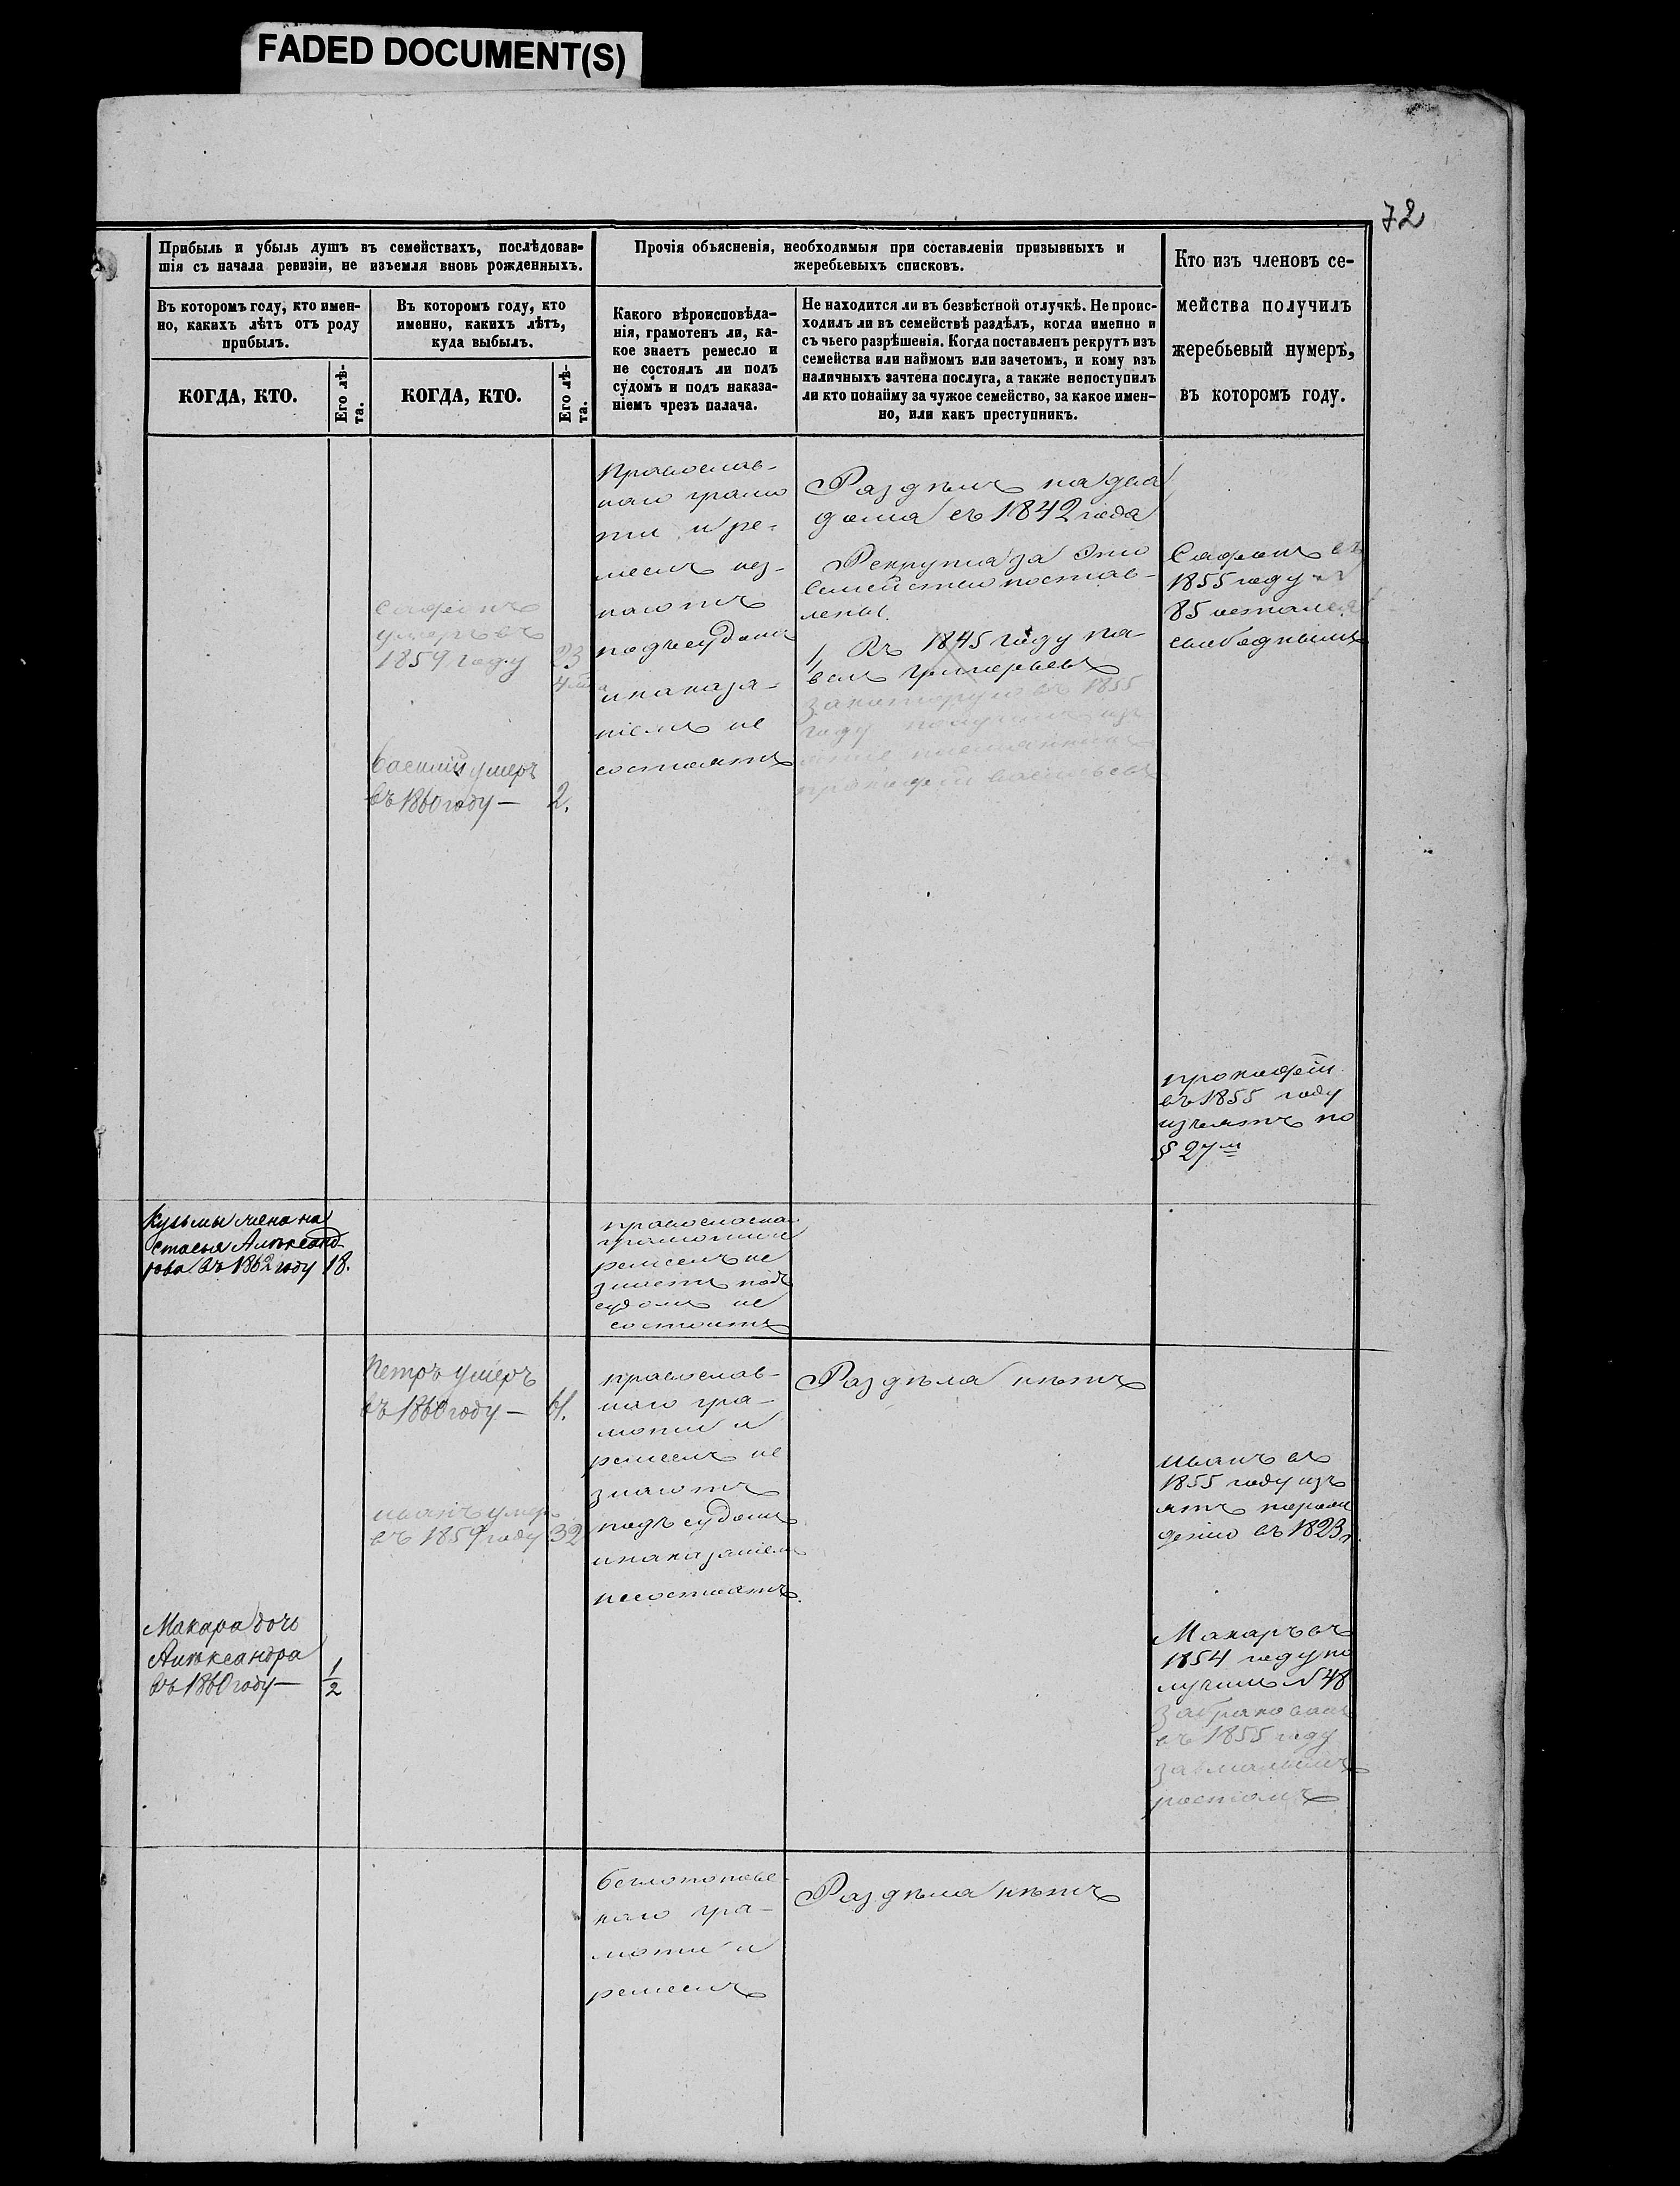 FADED DOCUMENT(S)
72
Прибыль и убыль душъ въ семействахъ, послѣдовав-
шія съ начала ревизіи, не изъемля вновь рожденныхъ.
Прочія объясненія, необходимыя при составленіи призывныхъ и
жеребьевыхъ списковъ.
Кто изъ членовъ се-
мейства получилъ
жеребьевый нумеръ,
въ которомъ году.
Въ которомъ году, кто имен-
но, какихъ лѣтъ отъ роду
прибылъ.
Въ которомъ году, кто
именно, какихъ лѣтъ,
куда выбылъ.
Какого вѣроисповѣда-
нія, грамотенъ ли, ка-
кое знаетъ ремесло и
не состоялъ ли подъ
судомъ и подъ наказа-
ніемъ чрезъ палача.
Не находится ли въ безвѣстной отлучкѣ. Не проис-
ходилъ ли въ семействѣ раздѣлъ, когда именно и
съ чьего разрѣшенія. Когда поставленъ рекрутъ изъ
семейства или наймомъ или зачетомъ, и кому изъ
наличныхъ зачтена послуга, а также непоступилъ
ли кто понайму за чужое семейство, за какое имен-
но, или какъ преступникъ.
КОГДА, КТО.
Его лѣ-
та.
КОГДА, КТО.
Его лѣ-
та.
Сафонъ
умеръ въ
1859 году 23
Василій умеръ
въ 1860 году — 2.
Православ-
наго грамо
ты и ре-
меслъ нез-
наютъ
подъ судомъ
и наказа-
ніемъ не
состоятъ
Раздѣлъ на два
дома съ 1842 года
Рекрута за это
семейство постав-
лены
1, Въ 1845 году Па-
велъ Григорьевъ
за которую въ 1855
году получилъ изъ
ятіе племянникъ
Прокофій Васильевъ
Сафонъ въ
1855 году №
85 остался
свободнымъ
Прокофій
въ 1855 году
изъятъ по
§ 27 м
Кузьмы жена На
стасья Александ-
рова въ 1862 году 18.
православнаго
грамоты и
ремеслъ не
знаетъ подъ
судомъ не
состоитъ
Петръ умеръ
въ 1860 году — 61.
Иванъ умеръ
въ 1859 году 32
православ-
наго гра-
моты и
ремеслъ не
знаютъ
подъ судомъ
и наказаніемъ
не состоятъ.
Раздѣла нѣтъ
Иванъ въ
1855 году изъ
ятъ по рож
денію въ 1823 г.
Макара дочь
Александра
въ 1860 году — 1/2
Макаръ въ
1854 году по
лучилъ № 48
забракованъ
въ 1855 году
за малымъ
ростомъ
беглопопов
наго гра-
моты и
ремеслъ
Раздѣла нѣтъ